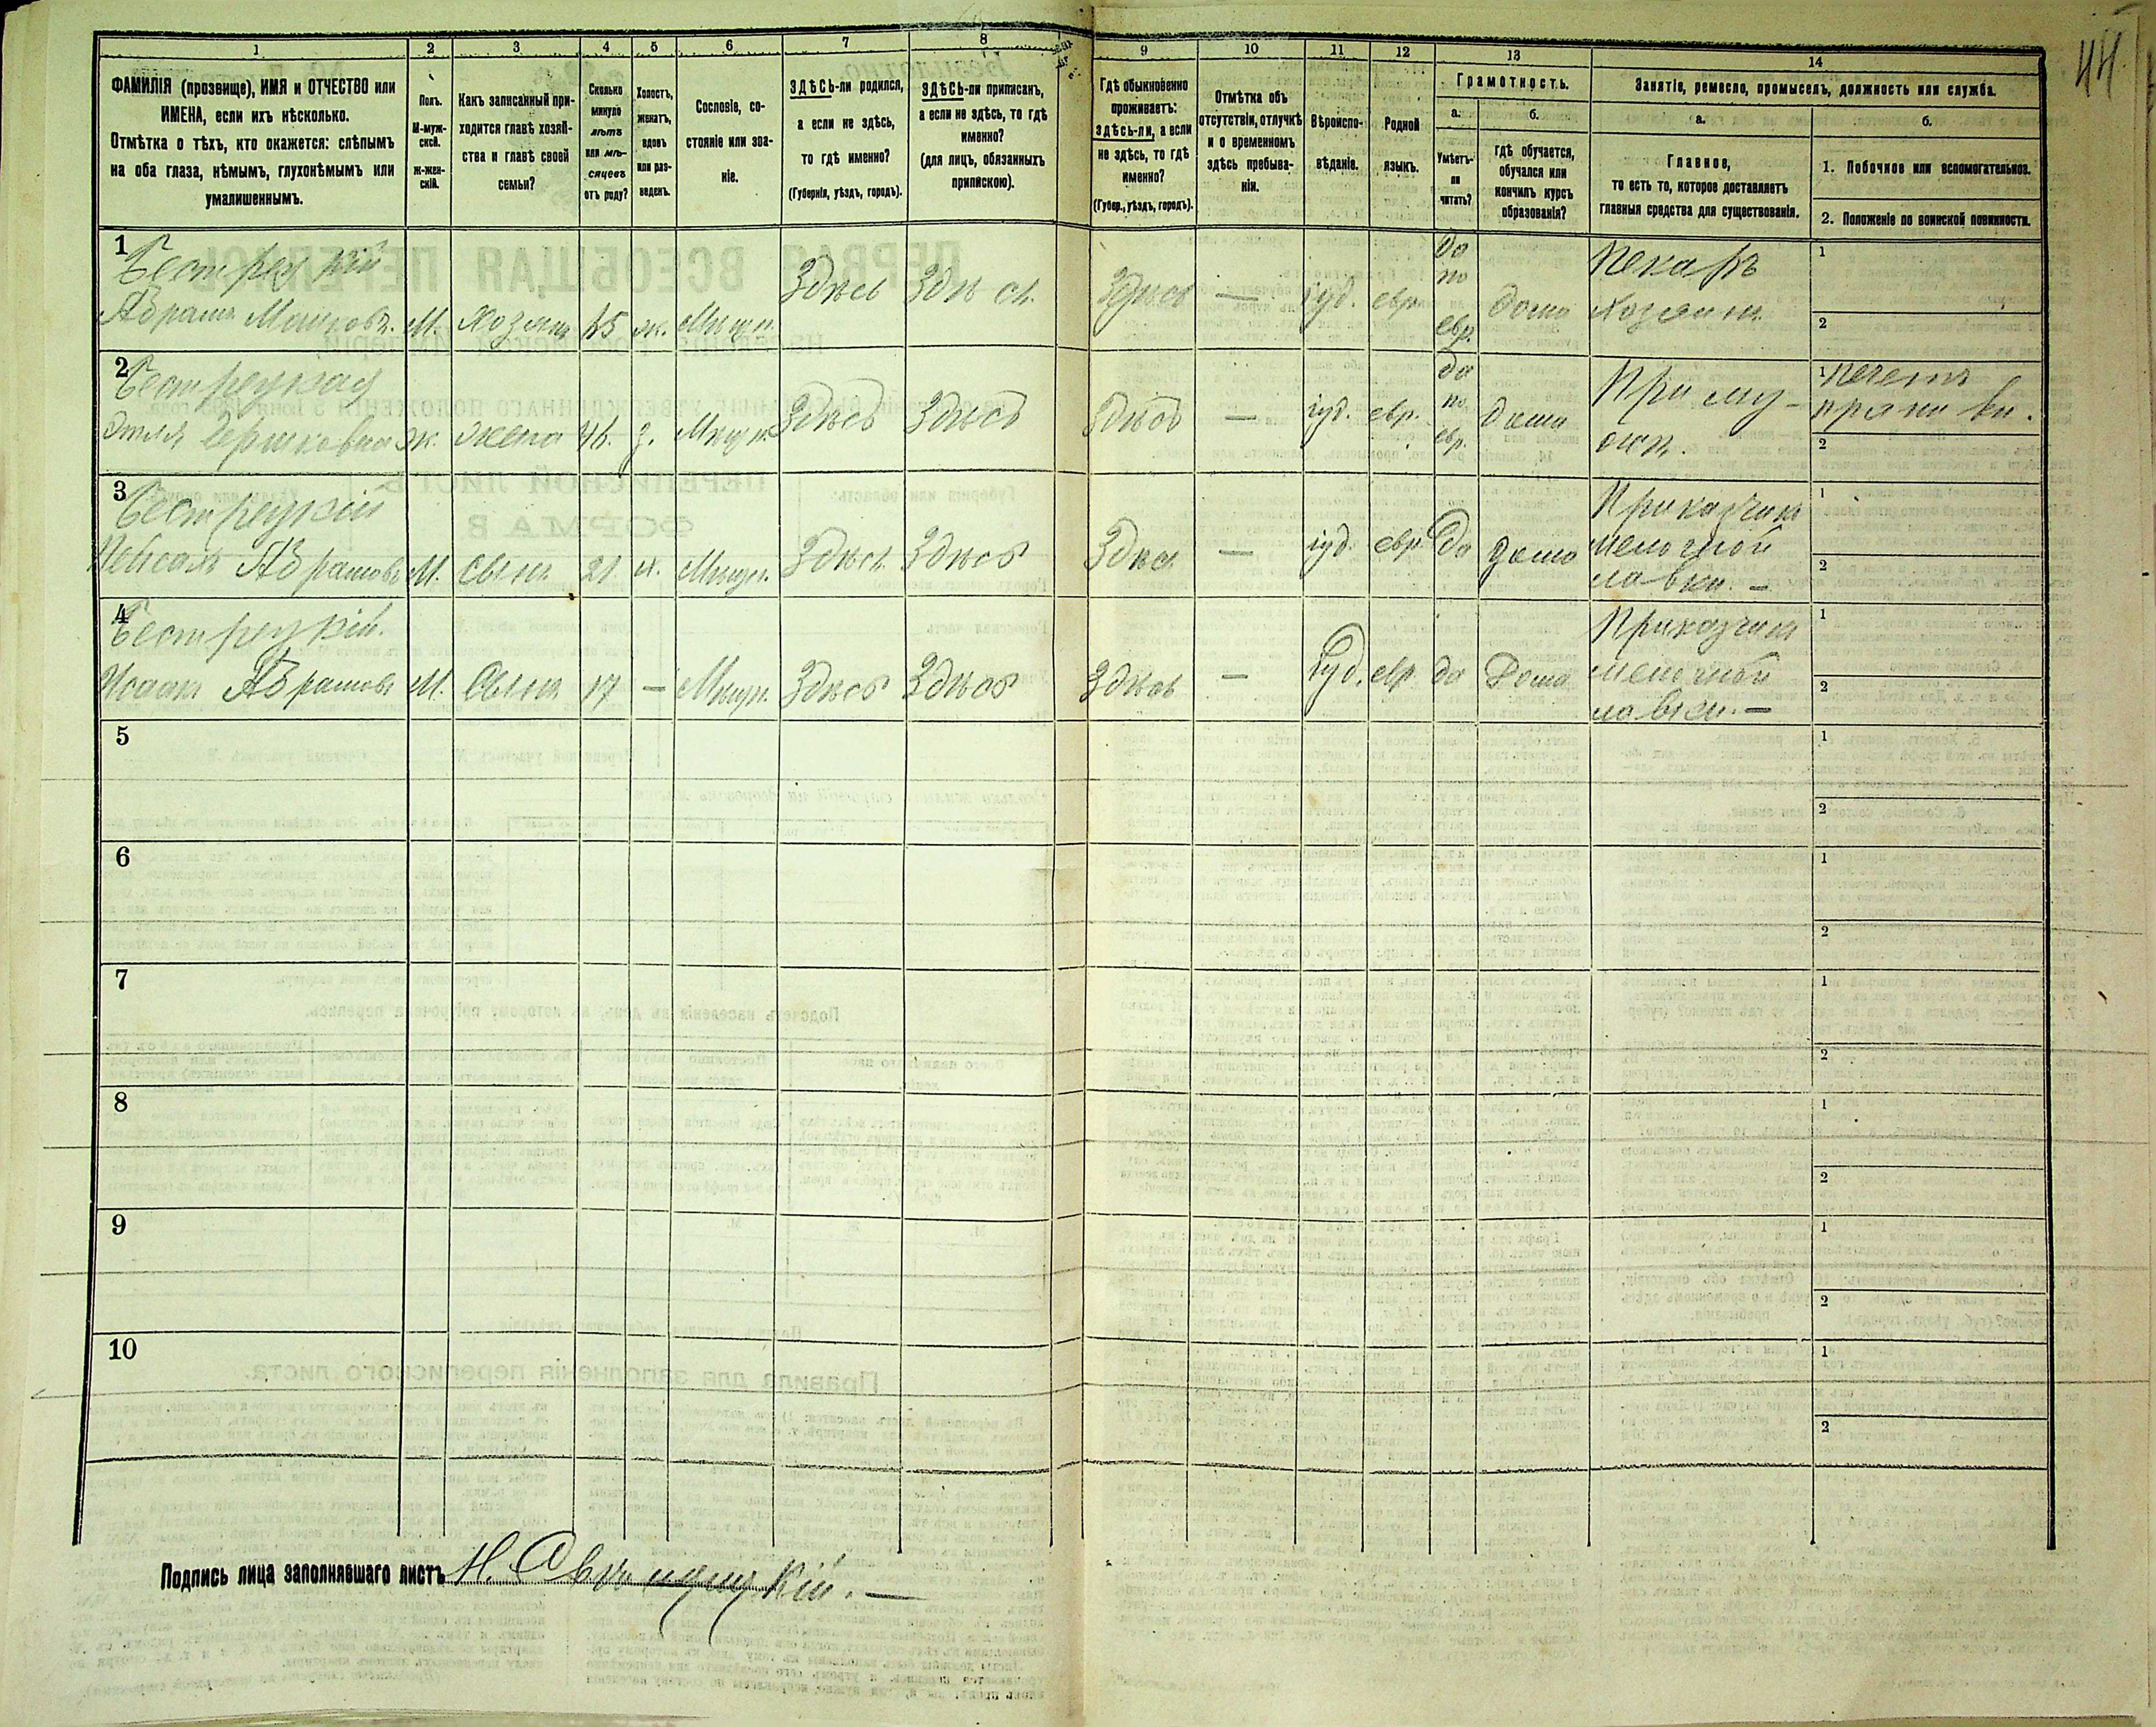 44.
1 2 3 4 5 6 7 8 9 10 11 12 13 14
ФАМИЛІЯ (прозвище), ИМЯ и ОТЧЕСТВО или ИМЕНА, если ихъ нѣсколько.
Отмѣтка о тѣхъ, кто окажется: слѣпымъ на оба глаза, нѣмымъ, глухонѣмымъ или умалишеннымъ.
Полъ.
М-мужской.
ж-женскій.
Какъ записанный приходится главѣ хозяйства и главѣ своей семьи?
Сколько минуло лѣтъ или мѣсяцевъ отъ роду?
Холостъ, женатъ, вдовъ или разведенъ.
Сословіе, состояніе или званіе.
ЗДѢСЬ-ли родился, а если не здѣсь, то гдѣ именно?
(Губернія, уѣздъ, городъ).
ЗДѢСЬ-ли приписанъ, а если не здѣсь, то гдѣ именно?
(для лицъ, обязанныхъ припискою).
Гдѣ обыкновенно проживаетъ: здѣсь-ли, а если не здѣсь, то гдѣ именно?
(Губер., уѣздъ, городъ).
Отмѣтка объ отсутствіи, отлучкѣ и о временномъ здѣсь пребываніи.
Вѣроисповѣданіе.
Родной языкъ.
Грамотность.
а.
Умѣетъ-ли читать?
б.
гдѣ обучается, обучался или кончилъ курсъ образованія?
Занятіе, ремесло, промыселъ, должность или служба.
а.
Главное,
то есть то, которое доставляетъ главныя средства для существованія.
б.
1. Побочное или вспомогательное.
2. Положеніе по воинской повинности.
1 Бестрецкій
Абрамъ М. хозяинъ 45 ж. Мѣщ. Здѣсь Здѣсь Здѣсь — іуд. евр. да по евр. дома Пекарь хозяинъ
1
2
2 Бестрецкая
Гершковна ж. жена 46 з. Мѣщ. Здѣсь Здѣсь Здѣсь — іуд. евр. да по евр. дома При мужѣ
1 печетъ пряники.
2
3 Бестрецкій
Абрамовъ М. сынъ 21 х. Мѣщ. Здѣсь Здѣсь Здѣсь — іуд. евр. да дома Приказчикъ мелочной лавки. —
1
2
4 Бестрецкій.
Исаакъ Абрамовъ М. Сынъ 17 — Мѣщ. Здѣсь Здѣсь Здѣсь — Іуд. евр. да Дома Приказчикъ мелочной лавки. —
1
2
5
1
2
6
1
2
7
1
2
8
1
2
9
1
2
10
1
2
Подпись лица заполнявшаго листъ Н.